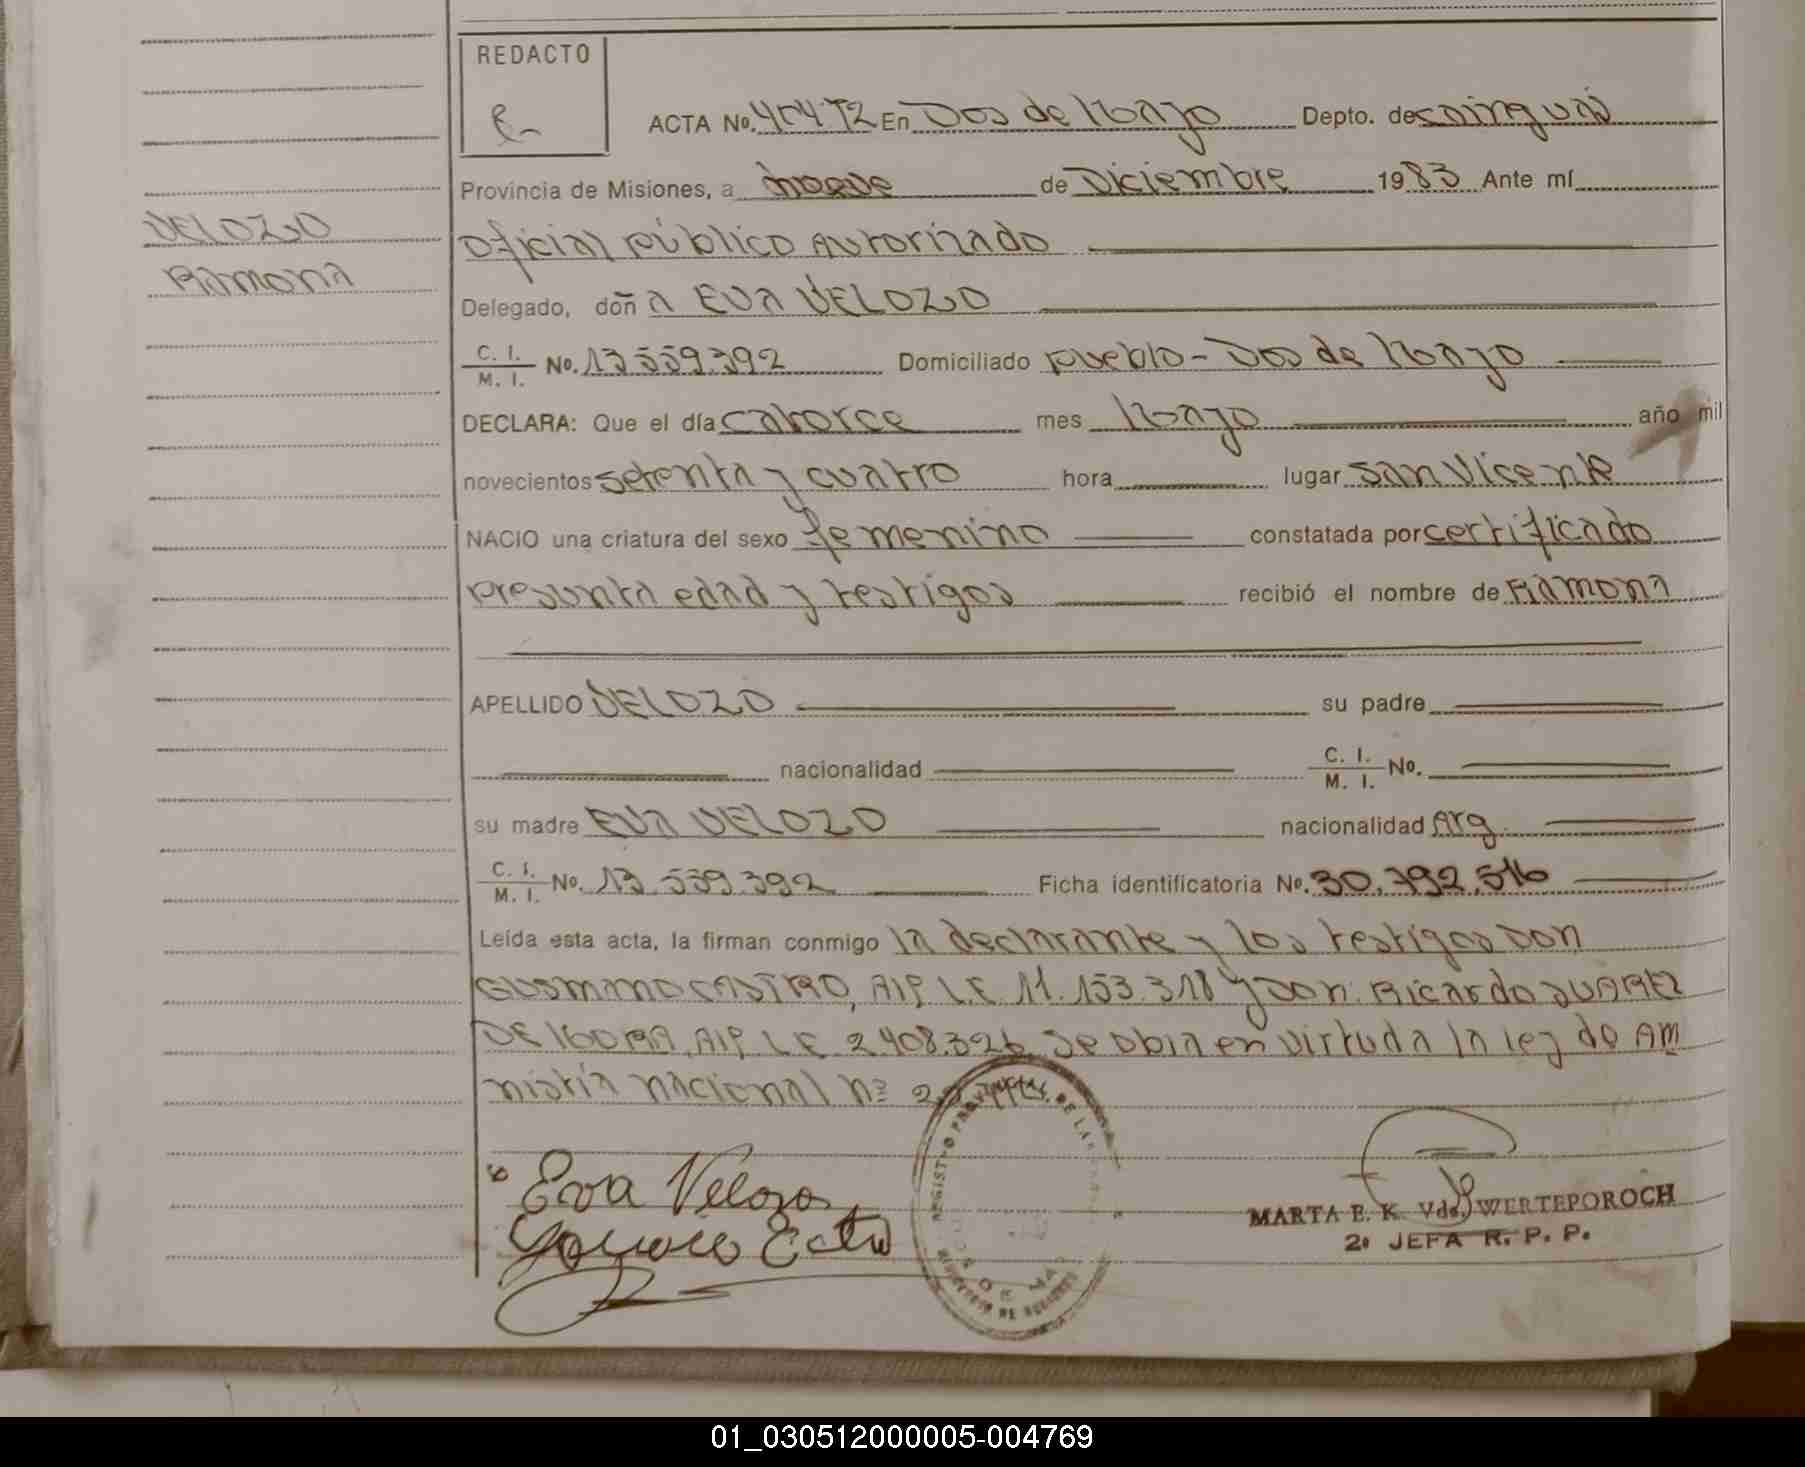 REDACTO
ACTA No. En Dos de Mayo Depto. de Cainguás
Provincia de Misiones, a nueve de Diciembre 1983 Ante mí
Oficial público Autorizado
VELOZO
RAMONA
Delegado, doñ a EVA VELOZO
C. I. M. I. No. 13.559.392 Domiciliado pueblo - Dos de Mayo
DECLARA: Que el día catorce mes Mayo año mil
novecientos setenta y cuatro hora lugar San Vicente
NACIO una criatura del sexo femenino constatada por certificado
presunta edad y testigos recibió el nombre de RAMONA
APELLIDO VELOZO su padre
nacionalidad C. I. M. I. No.
su madre EVA VELOZO nacionalidad Arg.
C. I. M. I. No. 13.559.392 Ficha identificatoria No. 30.792.516
Leída esta acta, la firman conmigo la declarante y los testigos Don
CASTRO, AIP L.E. 11.153.318 y Don Ricardo SUAREZ
DE AIP L.E. 2.408.326 Se obra en virtud a la ley de AM
nistía nacional nº
Eva Velozo
MARTA E. K. Vda. WERTEPOROCH
2ª JEFA R. P. P.
01_030512000005-004769